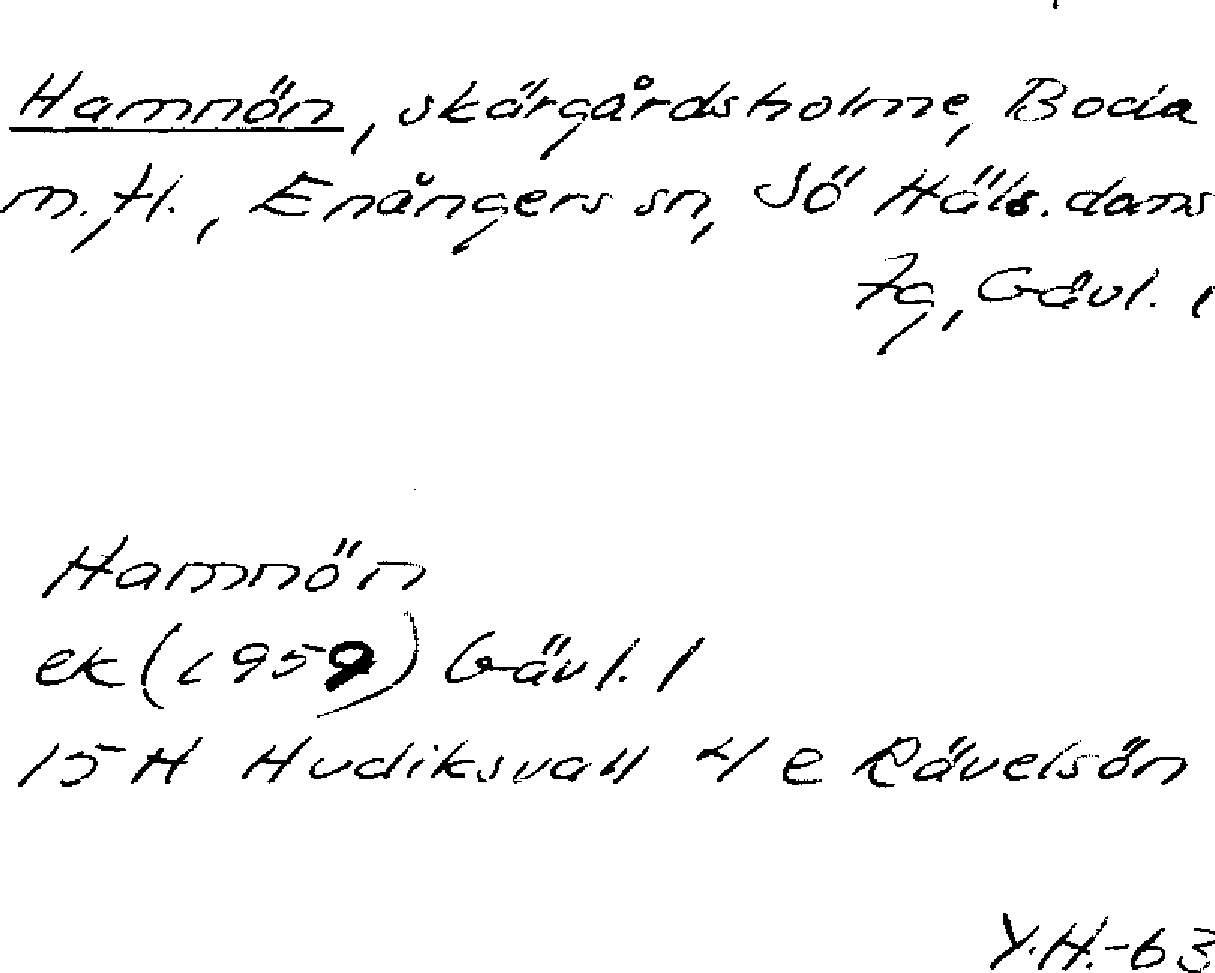 Hamnön, skärgårdsholme, Boda
m.fl., Enångers sn, Sö Häls. doms
7g, Gävl. l
Hamnön
ek (1959) Gävl. l
15 H Hudiksvall 4 e Rävelsön
Y.H.-63